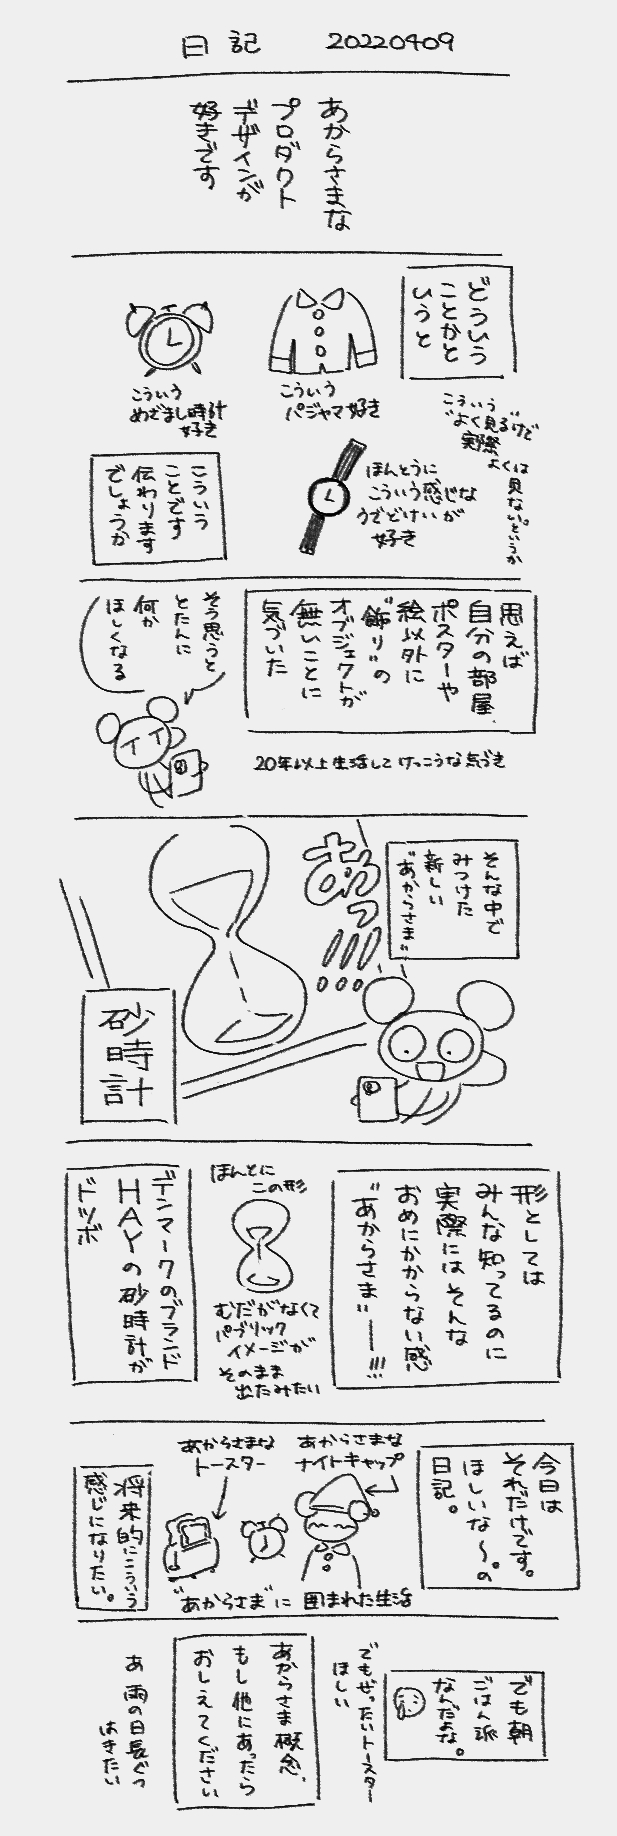 日記 20220409
あからさまな
プロダクト
デザインが
好きです
どういう
ことかと
いうと
こういう
パジャマ好き
こういう
めざまし時計
好き
こういう
"よく見るけど
実際
よくは
見ない"というか
ほんとうに
こういう感じな
うでどけいが
好き
こういう
ことです
伝わります
でしょうか
思えば
自分の部屋、
ポスターや
絵以外に
"飾り"の
オブジェクトが
無いことに
気づいた
20年以上生活してけっこうな気づき
そう思うと
とたんに
何か
ほしくなる
そんな中で
みつけた
新しい
"あからさま"
あっ!!!
砂時計
形としては
みんな知ってるのに
実際にはそんな
おめにかからない感
"あからさま"ー!!!
ほんとに
この形
むだがなくて
パブリック
イメージが
そのまま
出たみたい
デンマークのブランド
HAYの砂時計が
ドツボ
今日は
それだけです。
ほしいな〜。の
日記。
あからさまな
ナイトキャップ
あからさまな
トースター
"あからさま"に囲まれた生活
将来的にこういう
感じになりたい。
でも朝
ごはん派
なんだよな。
でもぜったいトースター
ほしい
あからさま概念、
もし他にあったら
おしえてください
あ 雨の日長ぐつ
はきたい